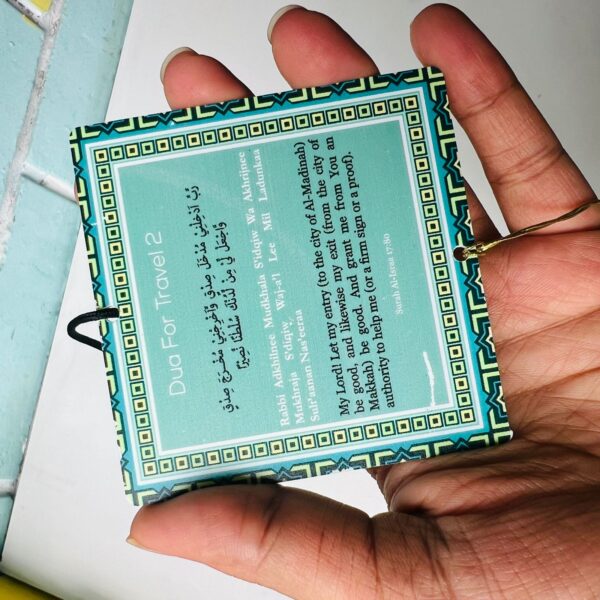 Dua For Travel 2
رَّبِّ أَدْخِلْنِي مُدْخَلَ صِدْقٍ وَأَخْرِجْنِي مُخْرَجَ صِدْقٍ
وَاجْعَل لِّي مِن لَّدُنكَ سُلْطَانًا نَّصِيرًا
Rabbi Adkhilnee Mudkhala S'idqiw Wa Akhrijnee
Mukhraja S'diqiw Waj-a'l Lee Mil Ladunkaa
Sult'aanan Nas'eeraa
My Lord! Let my entry (to the city of Al-Madinah)
be good, and likewise my exit (from the city of
Makkah) be good. And grant me from You an
authority to help me (or a firm sign or a proof).
Surah Al-Israa 17:80